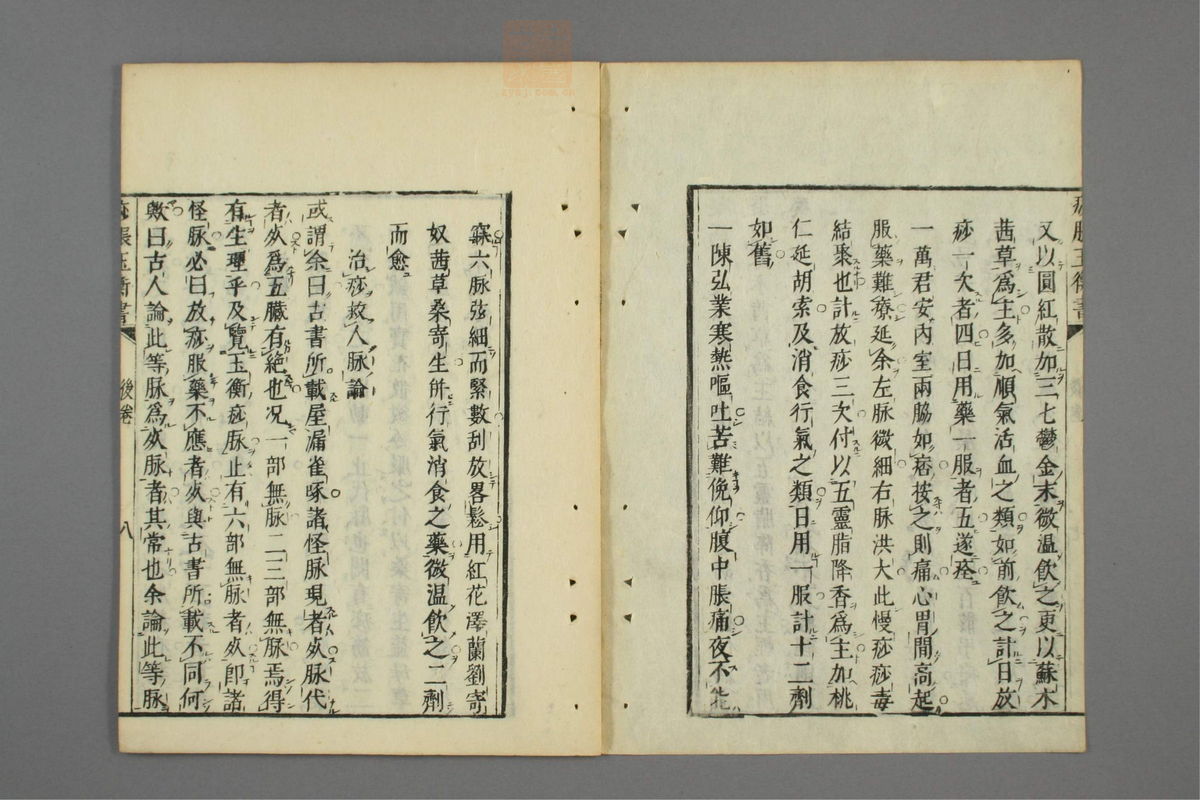 又以圓紅散加三七鬱金末微温飲之更以蘇木
茜草爲主多加順氣活血之類如前飲之計日放
痧一次者四日用藥一服者五遂痊
一萬君安内室兩脇如痞按之則痛心胃間高起
服藥難療延余左脉微細右脉洪大此慢痧痧毒
結聚也計放痧三次付以五靈脂降香爲主加桃
仁延胡索及消食行氣之類日用一服計十二劑
如舊
一陳弘業寒热嘔吐苦難俛仰腹中脹痛夜不能
寐六脉弦細而緊數刮放畧鬆用紅花澤蘭劉寄
奴茜草桑寄生併行氣消食之藥微温飲之二劑
而愈
治痧救人脉論
或謂余曰古書所載屋漏雀啄諸怪脉現者必脉代
者必爲五臟有絶也况一部無脉二三部無脉焉得
有生理乎及覽玉衡痧脉止有六部無脉者必即諸
怪脉必曰放痧服藥不應者必與古書所載不同何
歟曰古人論此等脉爲必脉者其常也余論此等脉
痧脹玉衡書
後卷
八